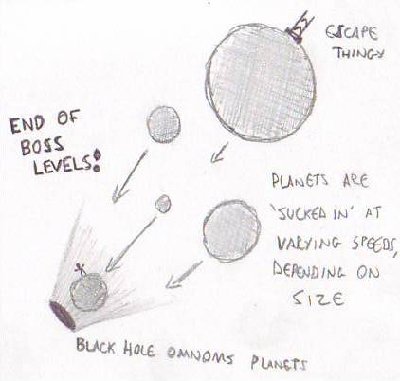 ESCAPE
THINGY
END OF
BOSS
LEVELS!
PLANETS ARE
'SUCKED IN' AT
VARYING SPEEDS,
DEPENDING ON
SIZE
BLACK HOLE OMNOMS PLANETS